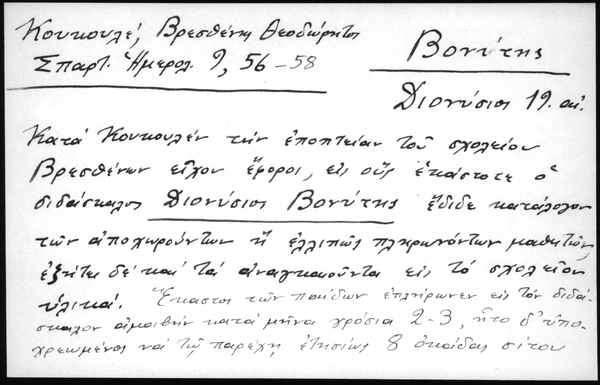 Κουκουλέ, Βρεσθένης Θεοδώρητος
Σπαρτ. Ἡμερολ. 9, 56-58
Βονύτης
Διονύσιος 19. αἰ.
Κατά Κουκουλέν τήν ἐποπτείαν τοῦ σχολείου
Βρεσθένων εἶχον ἔφοροι, εἰς οὕς ἑκάστοτε ὁ
διδάσκαλος Διονύσιος Βονύτης ἔδιδε κατάλογον
τῶν ἀποχωρούντων ἤ ἐλλιπῶς πληρωνόντων μαθητῶν,
ἐζήτει δέ καί τά ἀναγκαιοῦντα εἰς τό σχολεῖον
ὑλικά. Ἕκαστος τῶν παίδων ἐπλήρωνεν εἰς τόν διδά-
σκαλον ἀμοιβήν κατά μῆνα γρόσια 2-3, ἦτο δ' ὑπο-
χρεωμένος νά τῷ παρέχῃ ἐτησίως 8 ὀκάδας σίτου